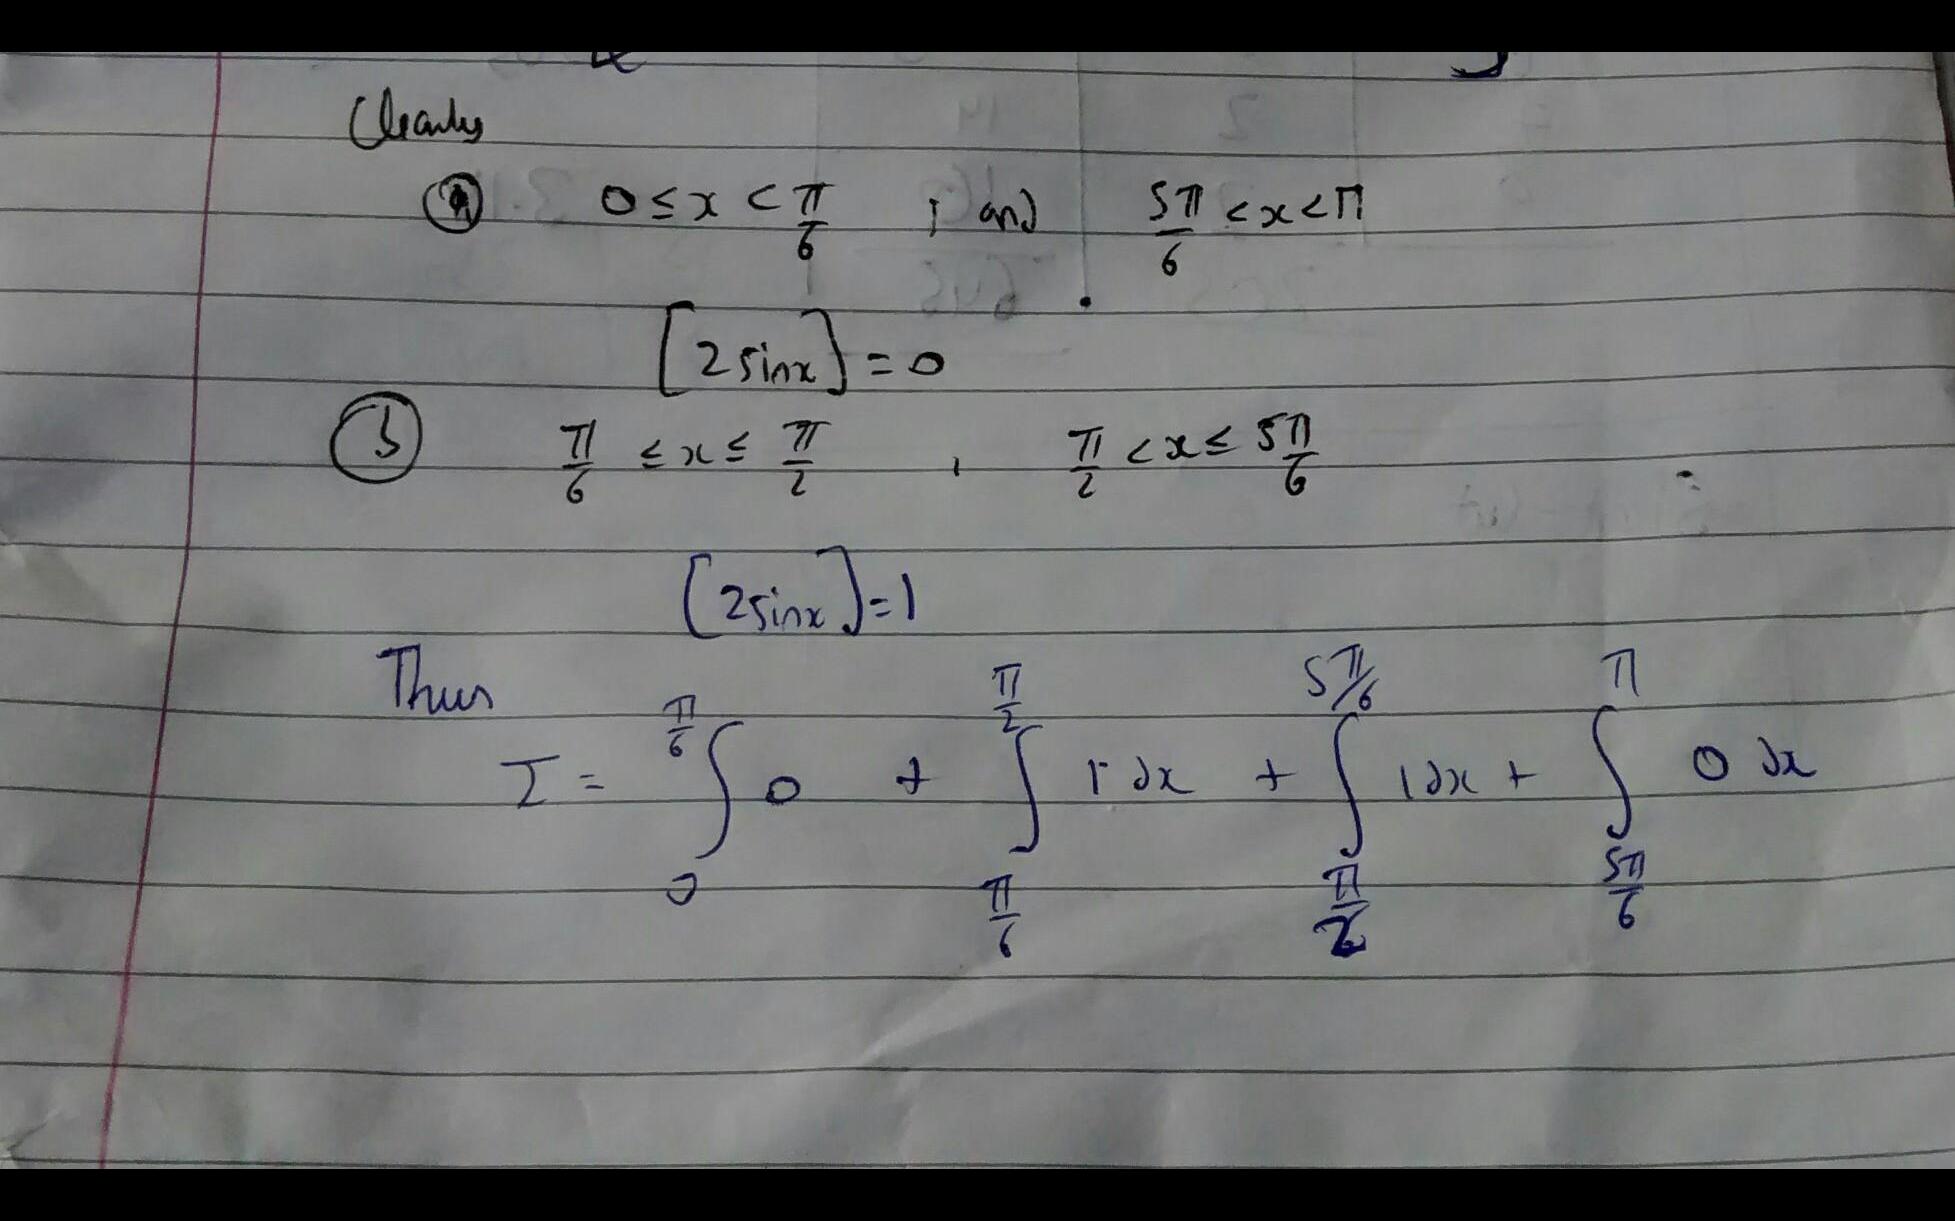 Clearly
(a) 0 ≤ x < π/6 ; and 5π/6 < x < π
[2 sin x] = 0
(b) π/6 ≤ x ≤ π/2 , π/2 < x ≤ 5π/6
[2 sin x] = 1
Thus
I = ∫_0^{π/6} 0 + ∫_{π/6}^{π/2} 1 dx + ∫_{π/2}^{5π/6} 1 dx + ∫_{5π/6}^{π} 0 dx